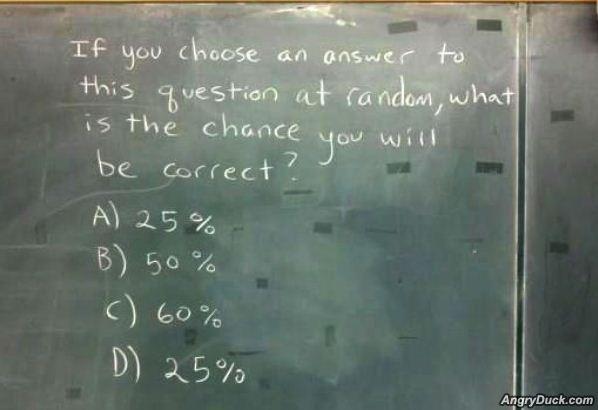 If you choose an answer to
this question at random, what
is the chance you will
be correct?
A) 25%
B) 50%
C) 60%
D) 25%
AngryDuck.com